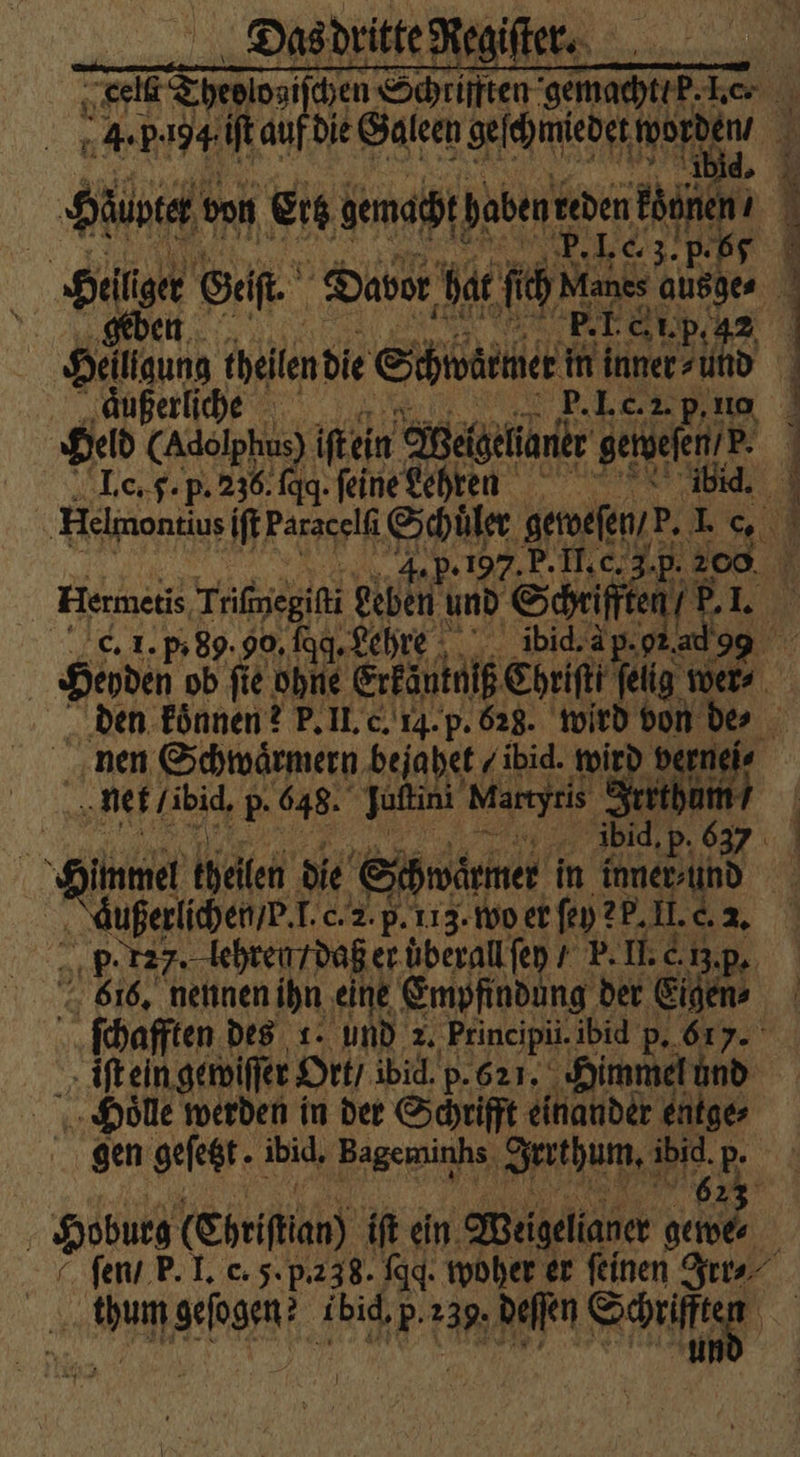 Das dritte Regiſter.
celſi Theologiſchen Schrifften gemacht / P. I. c.
4. p. 194. iſt auf die Galeen geſchmiedet worden /
ibid.
Haͤupter von Ertz gemacht haben reden koͤnnen /
P. I. c. 3. p. 65
Heiliger Geiſt. Davor hat ſich Manes ausge⸗
geben P. I. c. 1. p. 42
Heiligung theilen die Schwaͤrmer in inner⸗und
aͤußerliche P. I. c. 2. p. 110
Held (Adolphus) iſt ein Weigelianer geweſen / P.
I. c. 5. p. 236. ſqq. ſeine Lehren ibid.
Helmontius iſt Paracelſi Schuͤler geweſen / P. I. c.
4. p. 197. P. II. c. 3. p. 200
Hermetis Triſmegiſti Leben und Schrifften / P. I.
c. 1. p. 89. 90. ſqq. Lehre ibid. à p. 92. ad 99
Heyden ob ſie ohne Erkaͤntniß Chriſti ſelig wer⸗
den koͤnnen? P. II. c. 14. p. 628. wird von de⸗
nen Schwaͤrmern bejahet / ibid. wird vernei⸗
net / ibid. p. 648. Juſtini Martyris Irrthum /
ibid. p. 637
Himmel theilen die Schwaͤrmer in inner⸗und
aͤußerlichen / P. I. c. 2. p. 113. wo er ſey? P. II. c. 2.
p. 127. lehren / daß er uͤberall ſey / P. II. c. 13. p.
616. nennen ihn eine Empfindung der Eigen⸗
ſchafften des 1. und 2. Principii. ibid p. 617.
iſt ein gewiſſer Ort / ibid. p. 621. Himmel und
Hoͤlle werden in der Schrifft einander entge⸗
gen geſetzt. ibid. Bageminhs Irrthum, ibid. p.
623
Hoburg (Chriſtian) iſt ein Weigelianer gewe⸗
ſen / P. I. c. 5. p. 238. ſqq. woher er ſeinen Irr⸗
thum geſogen? ibid. p. 239. deſſen Schrifften
und